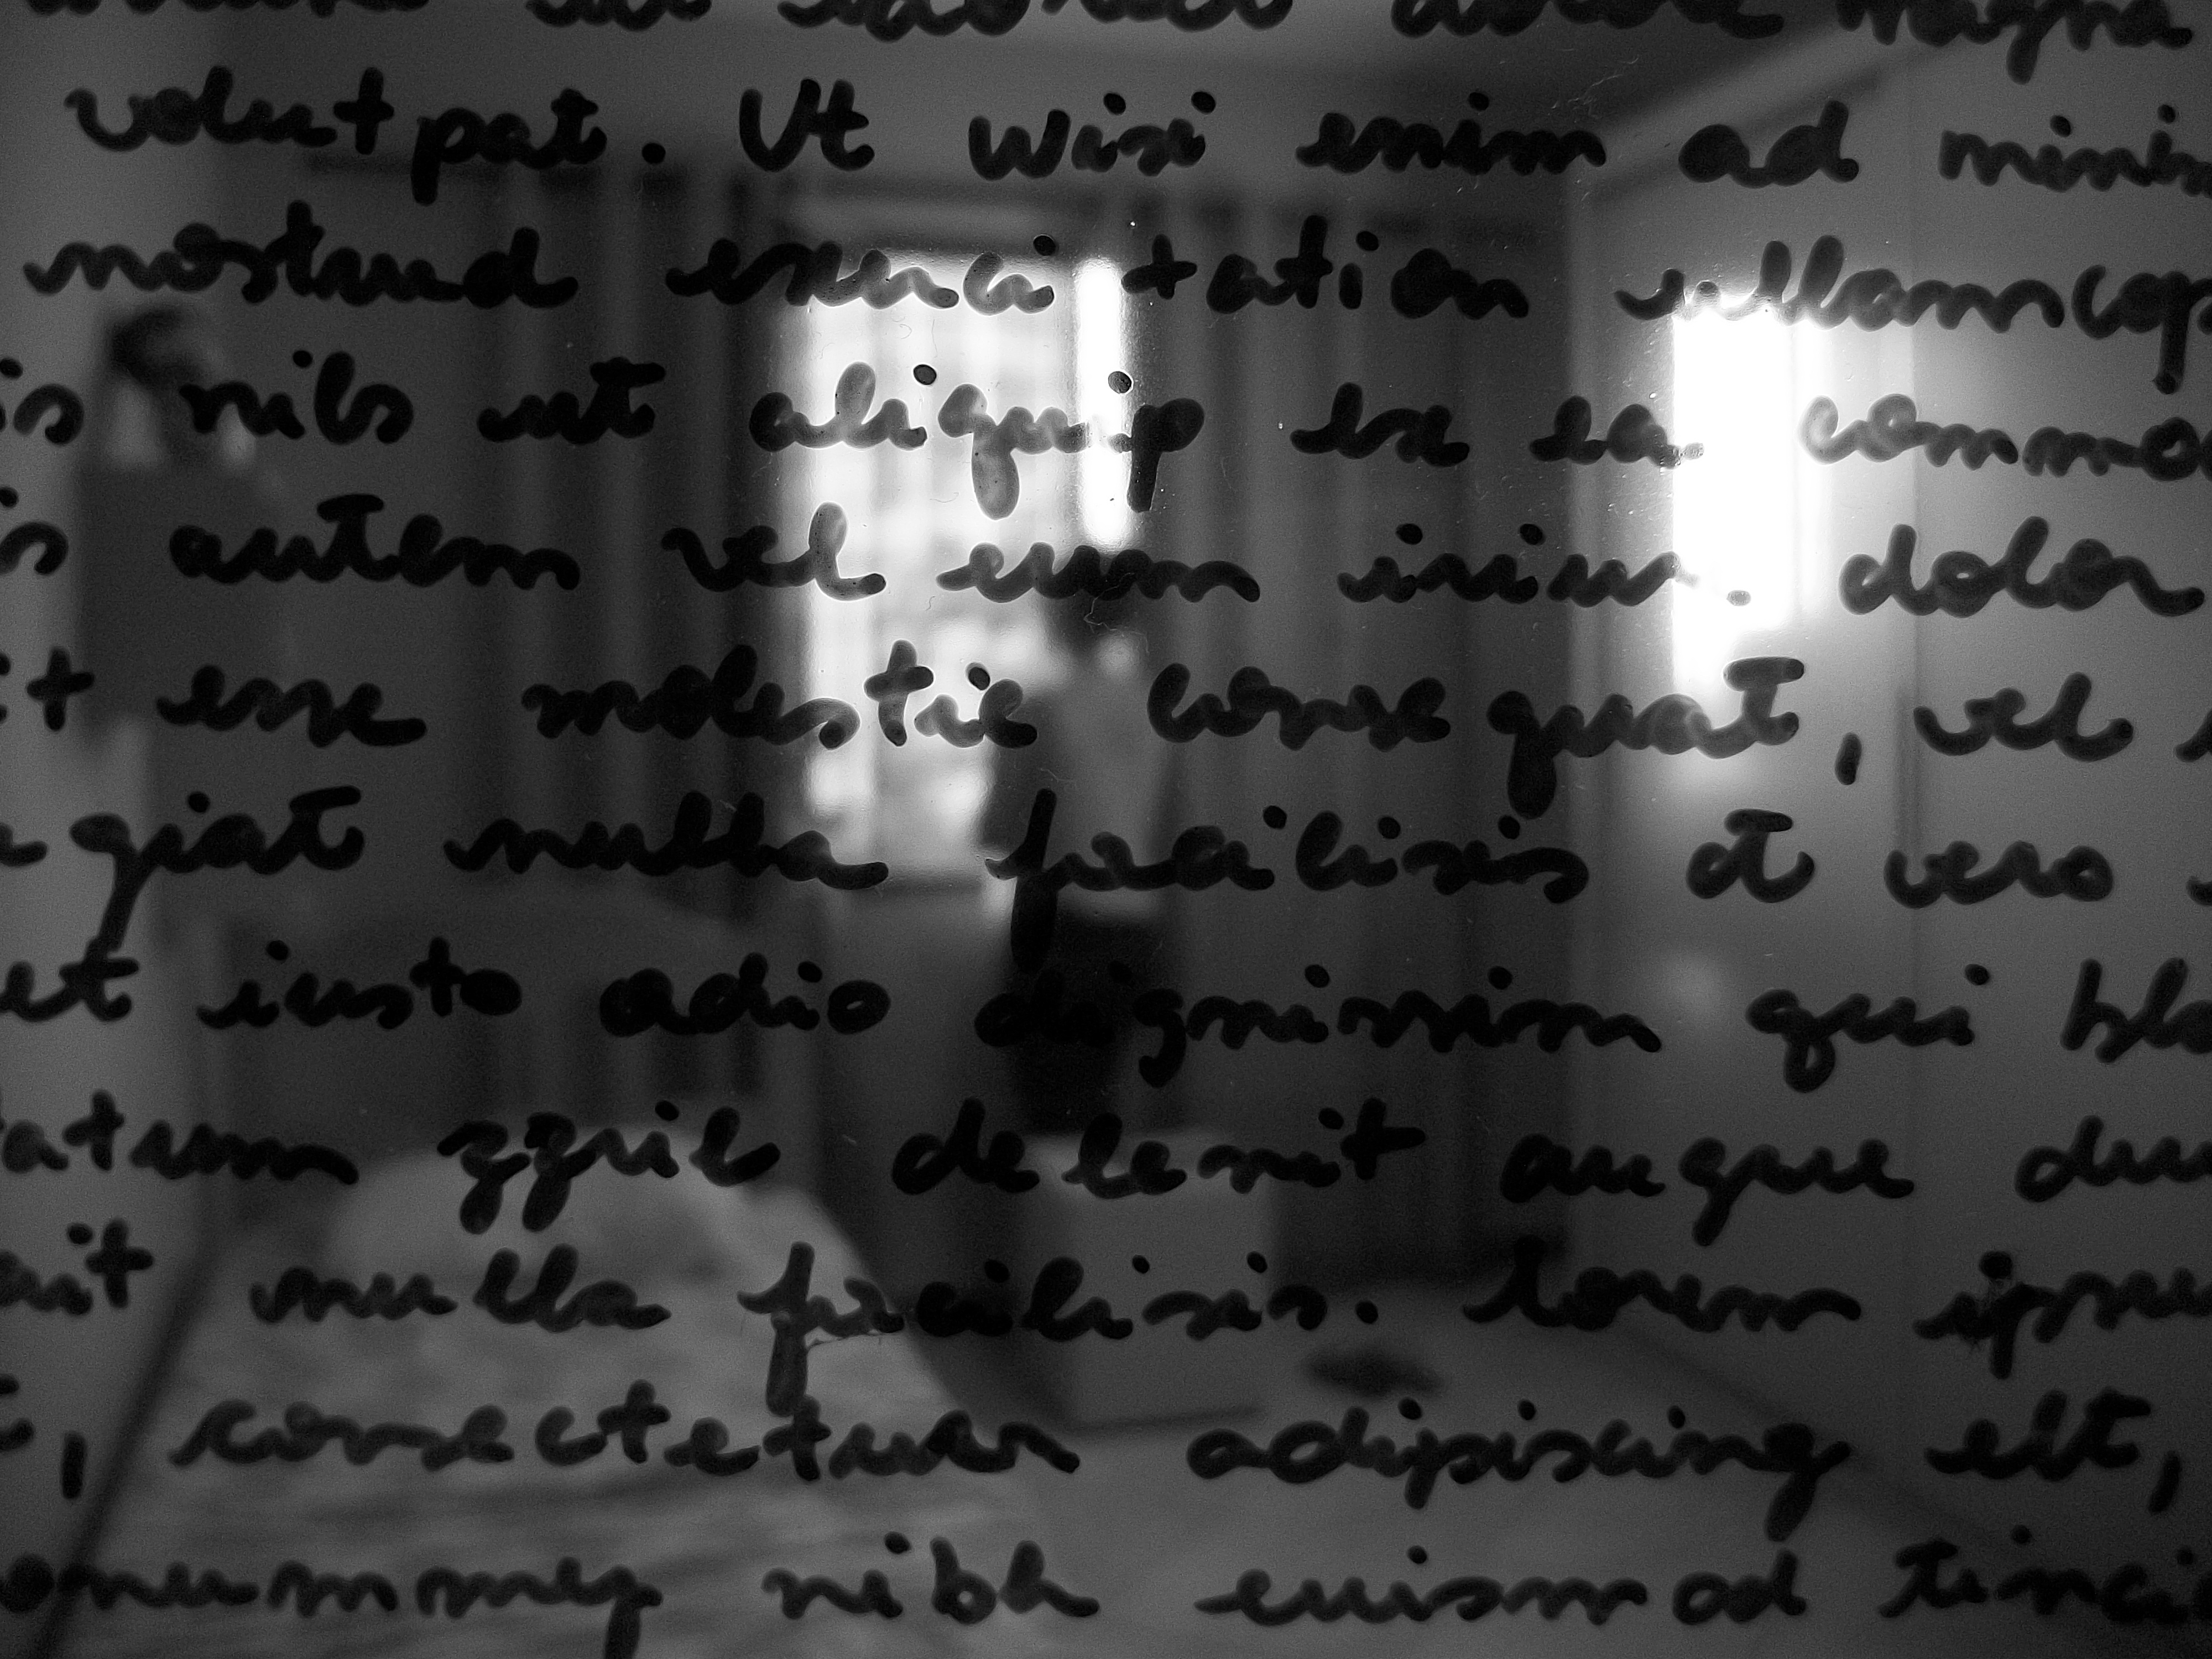 dolore magna
volutpat. Ut wisi enim ad minim
nostrud exerci tation ullamcop
is nils ut aliquip ex ea commo
is autem vel eum iriur. dolor
it esse molestie consequat, vel
giat nulla facilisis at vero
et iusto odio dignissim qui bla
atum zzril delenit augue dui
ait nulla facilisis. Lorem ipsu
, consectetuer adipiscing elit,
onummy nibh euismod tinci